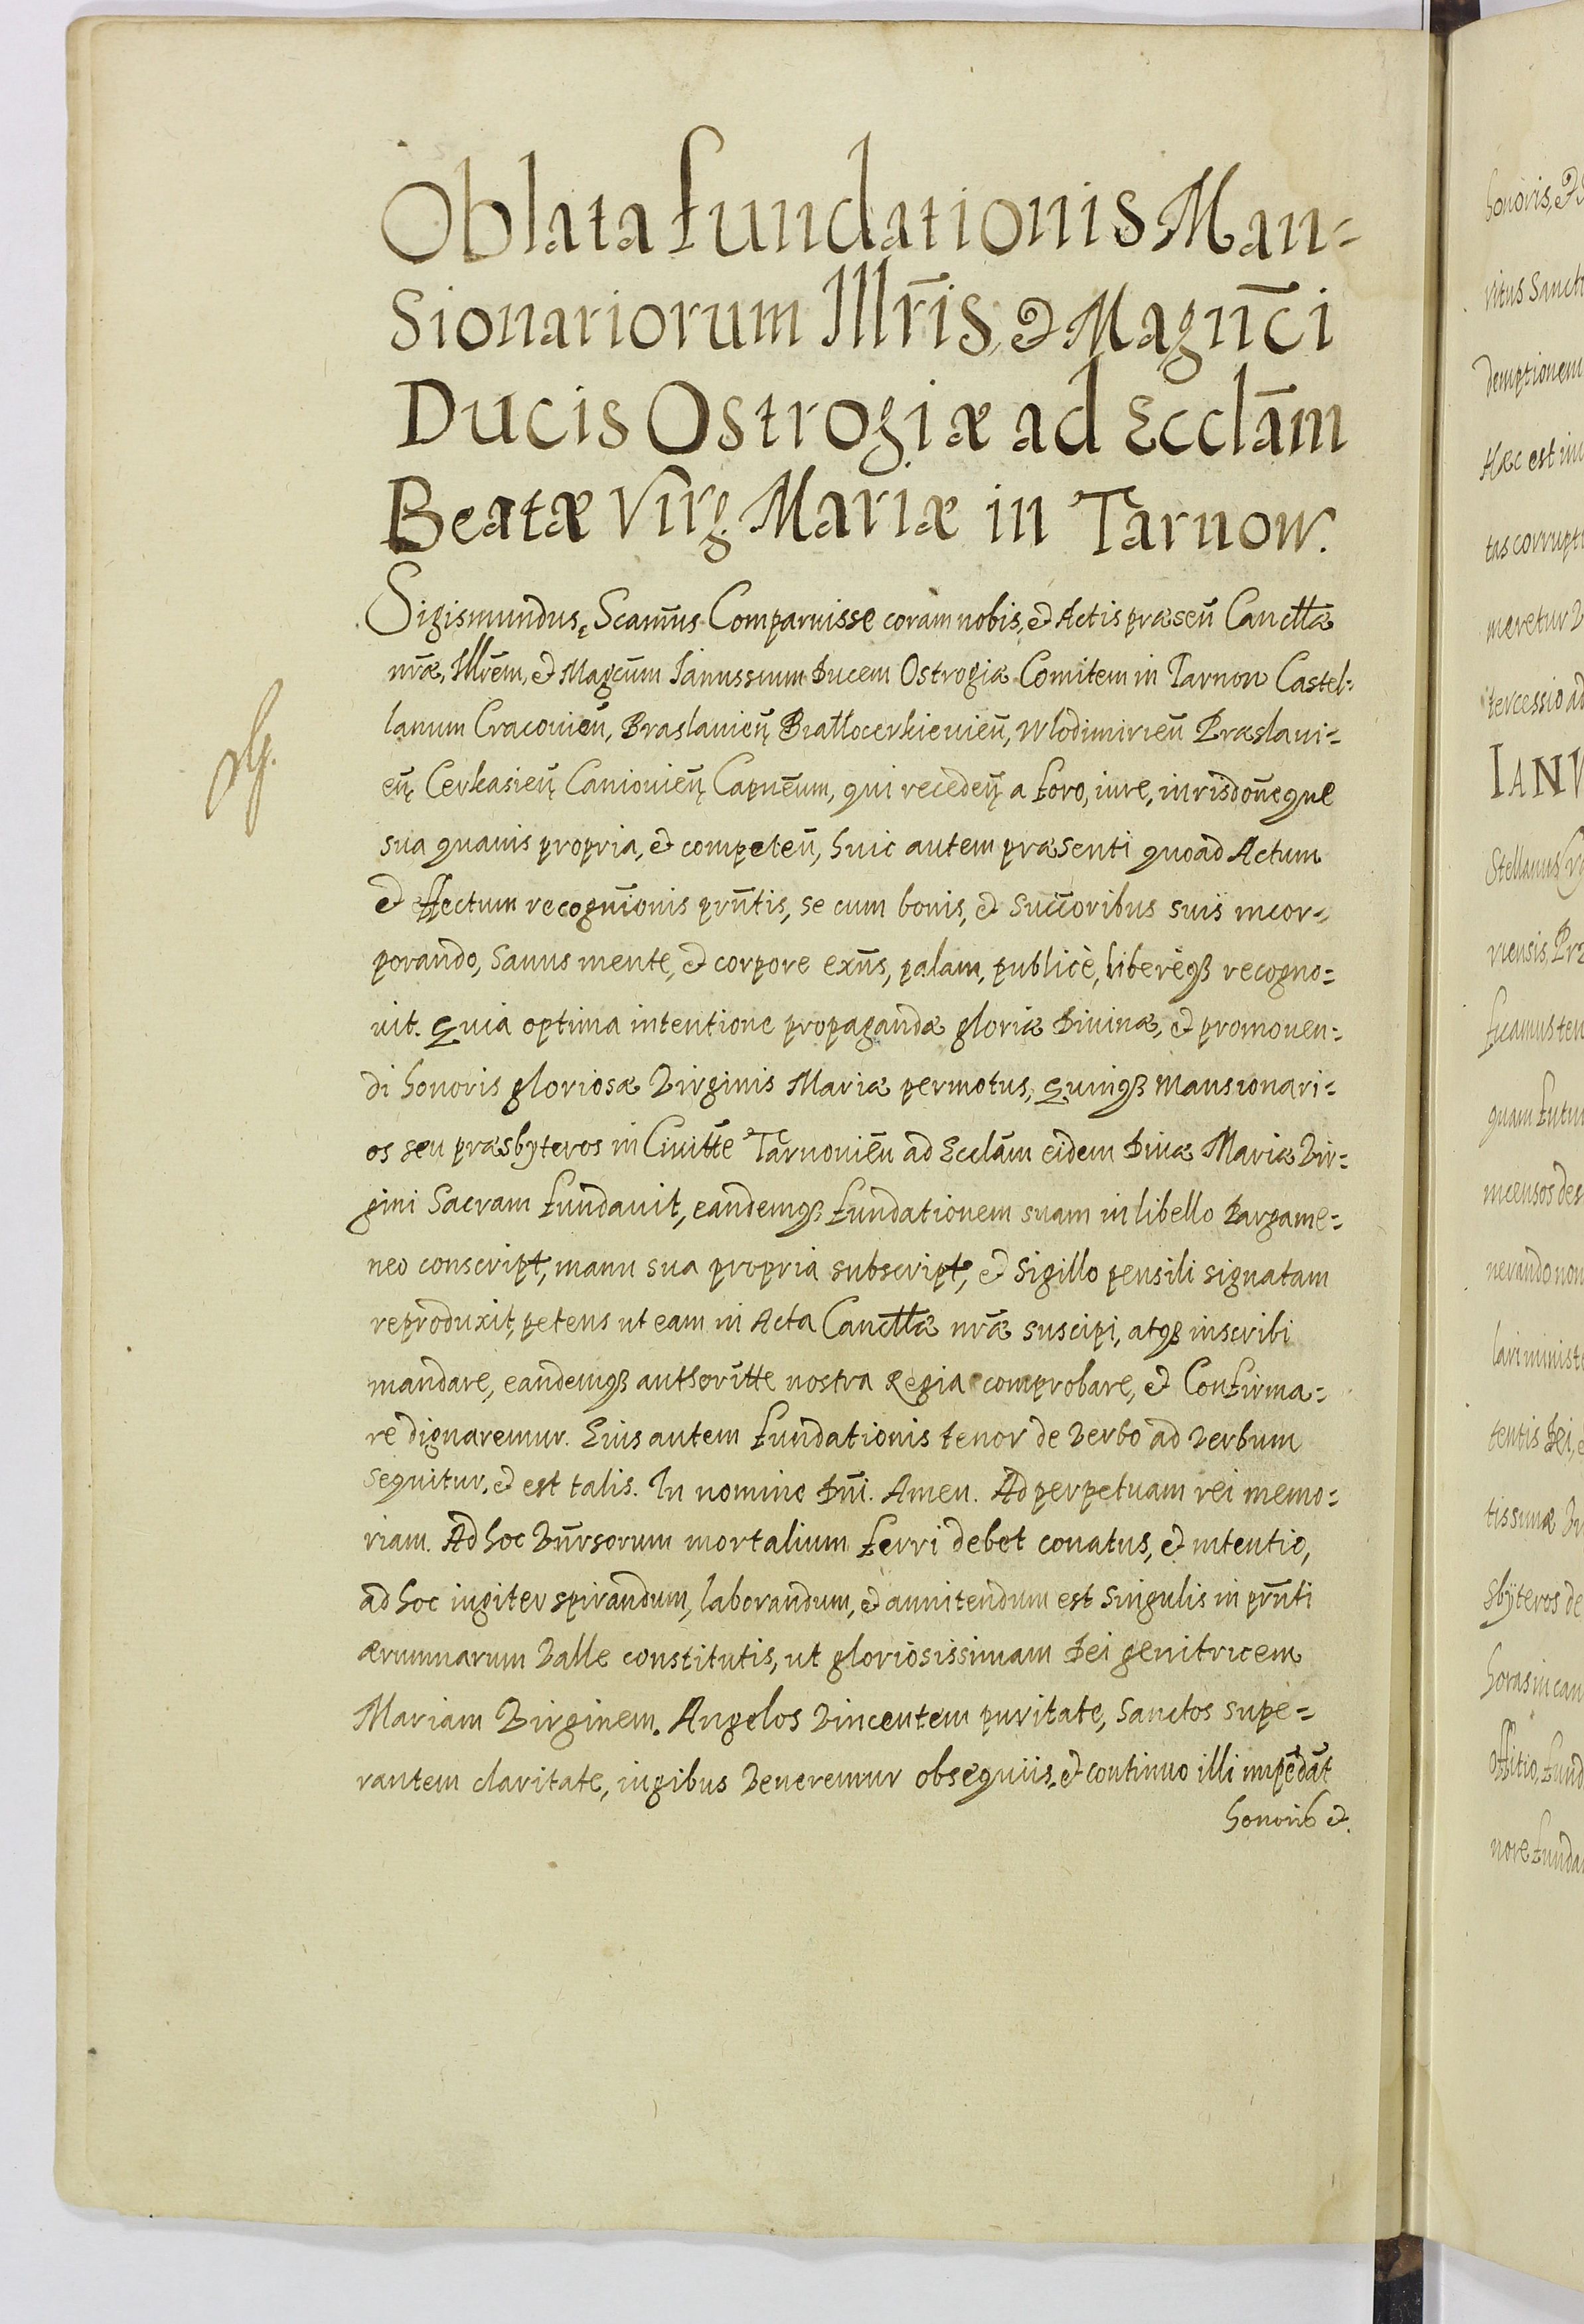 Oblata fundationis Man=
Sionariorum Illr̃is, et Magn̄ci
Ducis Ostrogiæ ad Ecclãm
Beatæ Virg. Mariæ in Tarnow.
Sigismundus, Scam̃us Comparuisse coram nobis, et Actis præseñ Cancłłæ
nr̃æ, Illr̃em, et Magcũm Ianussium Ducem Ostrogiæ Comitem in Tarnow Castel=
lanum Cracovieñ, Braslavieñ Białłocerkievieñ, Wlodimirieñ Præslavi=
eñ Cerkasieñ Caniovieñ Capnẽum, qui recedeñ a foro, iure, iurisdoñeque
sua quavis propria, et competeñ, huic autem præsenti quoad Actum
et effectum recogniōnis prñtis, se cum bonis, et Succ̃oribus suis incor=
porando, sanus mente, et corpore exñs, palam, publicè, liberèqȝ recogno=
vit. Quia optima intentione propagandæ gloriæ Divinæ, et promoven=
di honoris gloriosæ Virginis Mariæ permotus, Quinqȝ Mansionari=
os seu præsbyteros in Civitte Tarnovieñ ad Ecclãm eidem Divæ Mariæ Vir=
gini Sacram fundavit, eandemqȝ fundationem suam in libello Pargame=
neo conscript, manu sua propria subscript, et Sigillo pensili signatam
reproduxit, petens ut eam in Acta Cancłłæ nr̃æ suscipi, atqȝ inscribi
mandare, eandemqȝ authoritte nostra Regia comprobare, et Confirma=
re dignaremur. Eius autem fundationis tenor de verbo ad verbum
sequitur, et est talis. In nomine Dñi. Amen. Ad perpetuam rei memo=
riam. Ad hoc Vñrsorum mortalium ferri debet conatus, et intentio,
ad hoc iugiter spirandum, laborandum, et annitendum est Singulis in prñti
ærumnarum Valle constitutis, ut gloriosissimam Dei genitricem
Mariam Virginem. Angelos Vincentem puritate, Sanctos supe=
rantem claritate, iugibus Veneremur obsequiis, et continuo illi impẽdãt
honoris et.